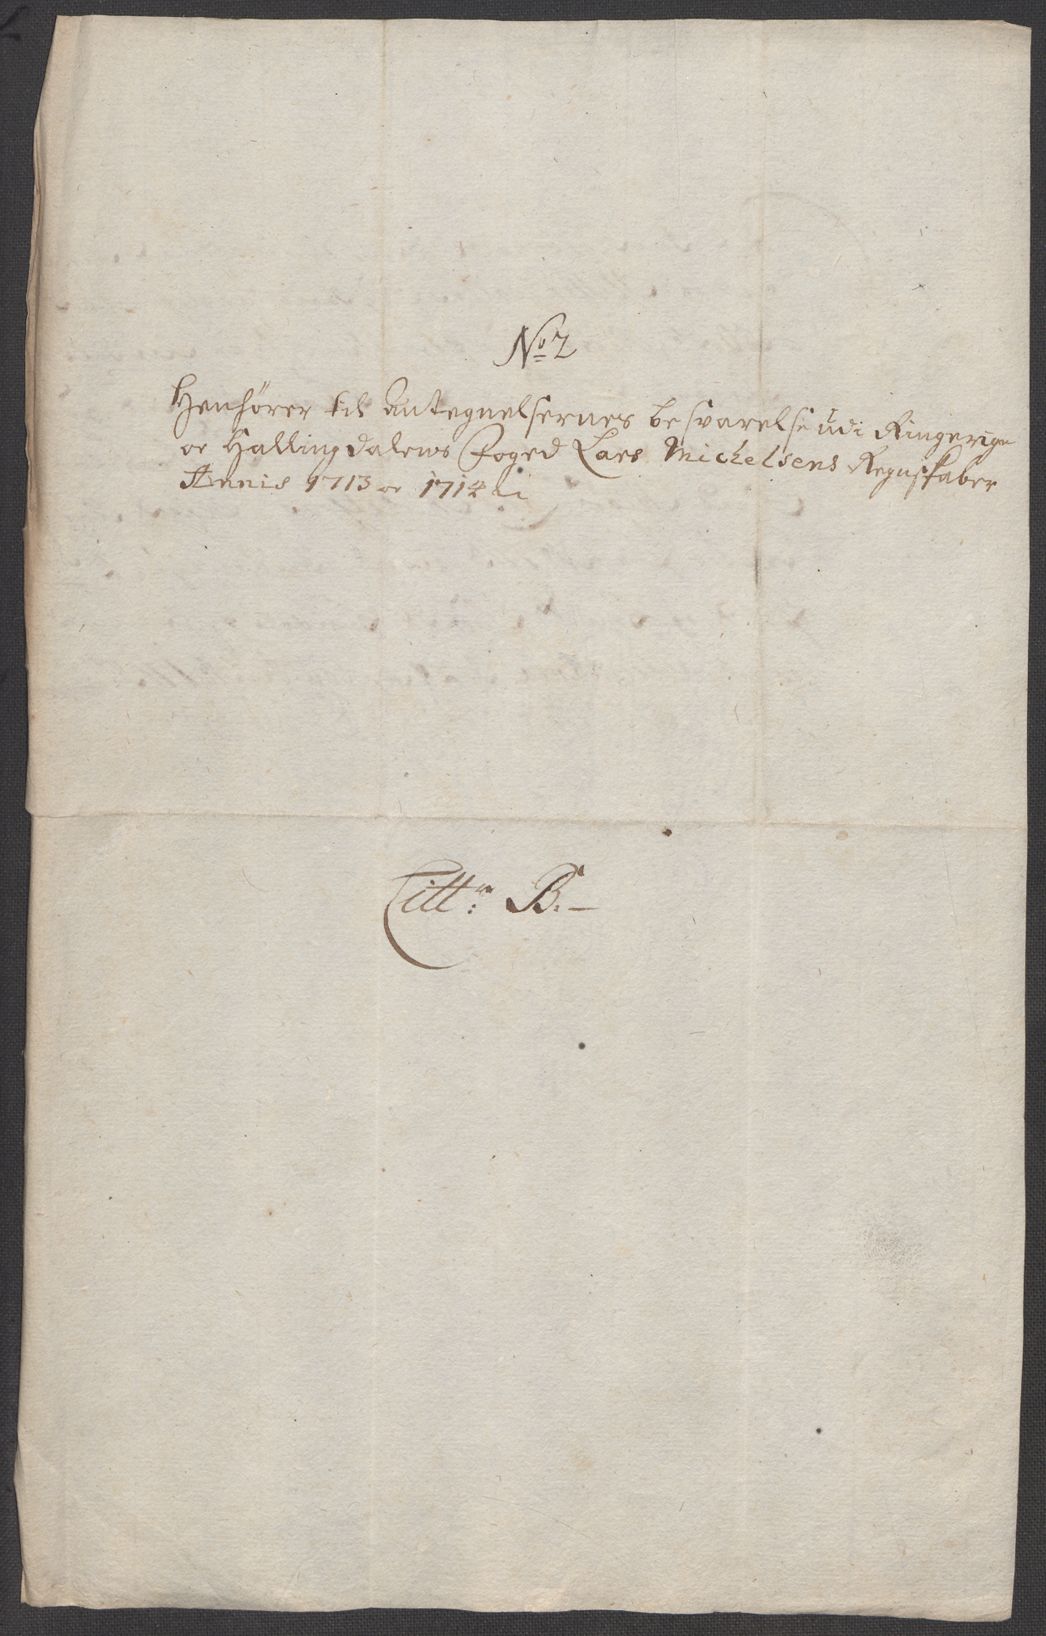 No 2
Henhører til Antegnelsernes besvarelse udi Ringerige
oc Hallingdalens Foged Lars Michelsens Regnskaber
Annis 1713 oc 1714
Littr: B. –